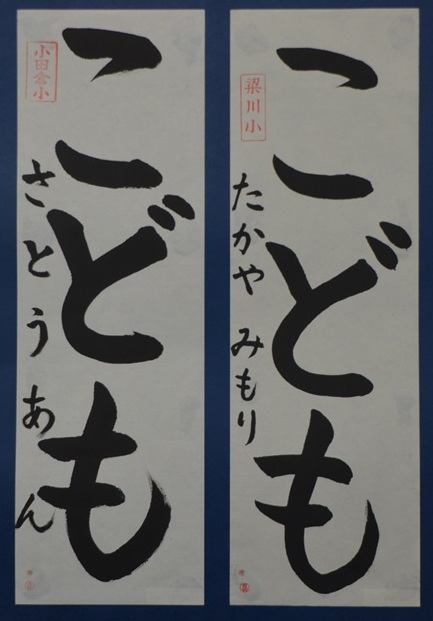 こども
梁川小
たかや みもり
こども
小田倉小
さとう あん